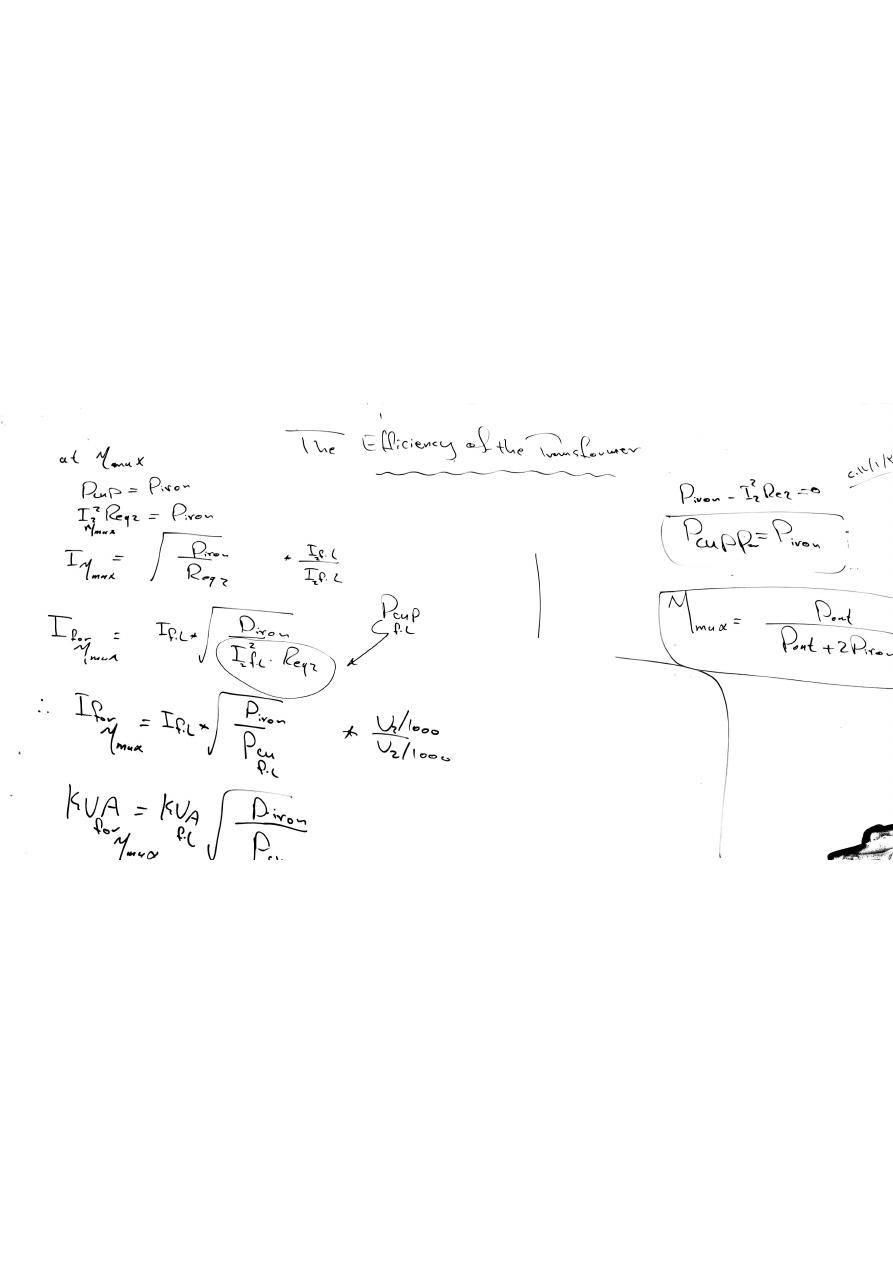 The Efficiency of the Transformer
at ηmax
Pcup = Piron
I₂² Req₂ = Piron
ηmax
Iηmax = √(Piron / Req₂) * I₂f.L / I₂f.L
I for ηmax = If.L * √(Piron / I₂²f.L · Req₂)
Pcup f.L
∴ I for ηmax = If.L * √(Piron / Pcu f.L) * V₂/1000 / V₂/1000
KVA for ηmax = KVA f.L √(Piron / Pcu
Piron - I₂² Req = 0
Pcupper = Piron
ηmax = Pout / Pout + 2Piron